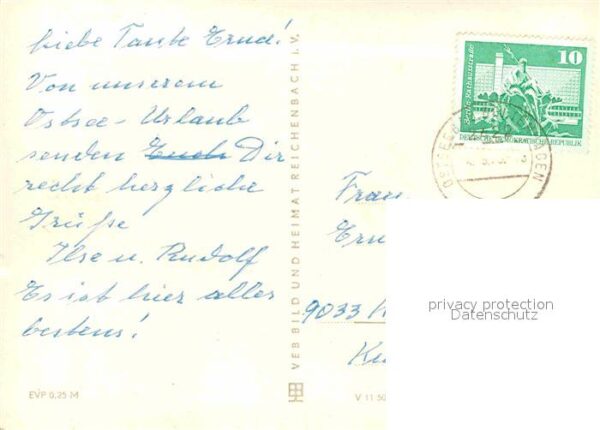 Liebe Tante Erna!
Von unserem
Ostsee-Urlaub
senden Euch Dir
recht herzliche
Grüße
Ilse u. Rudolf
Es ist hier alles
bestens!
EVP 0,25 M
VEB BILD UND HEIMAT REICHENBACH I. V.
V 11 50
10
Berlin-Rathausstraße
DEUTSCHE DEMOKRATISCHE REPUBLIK
OSTSEEB
Frau
9033
privacy protection
Datenschutz